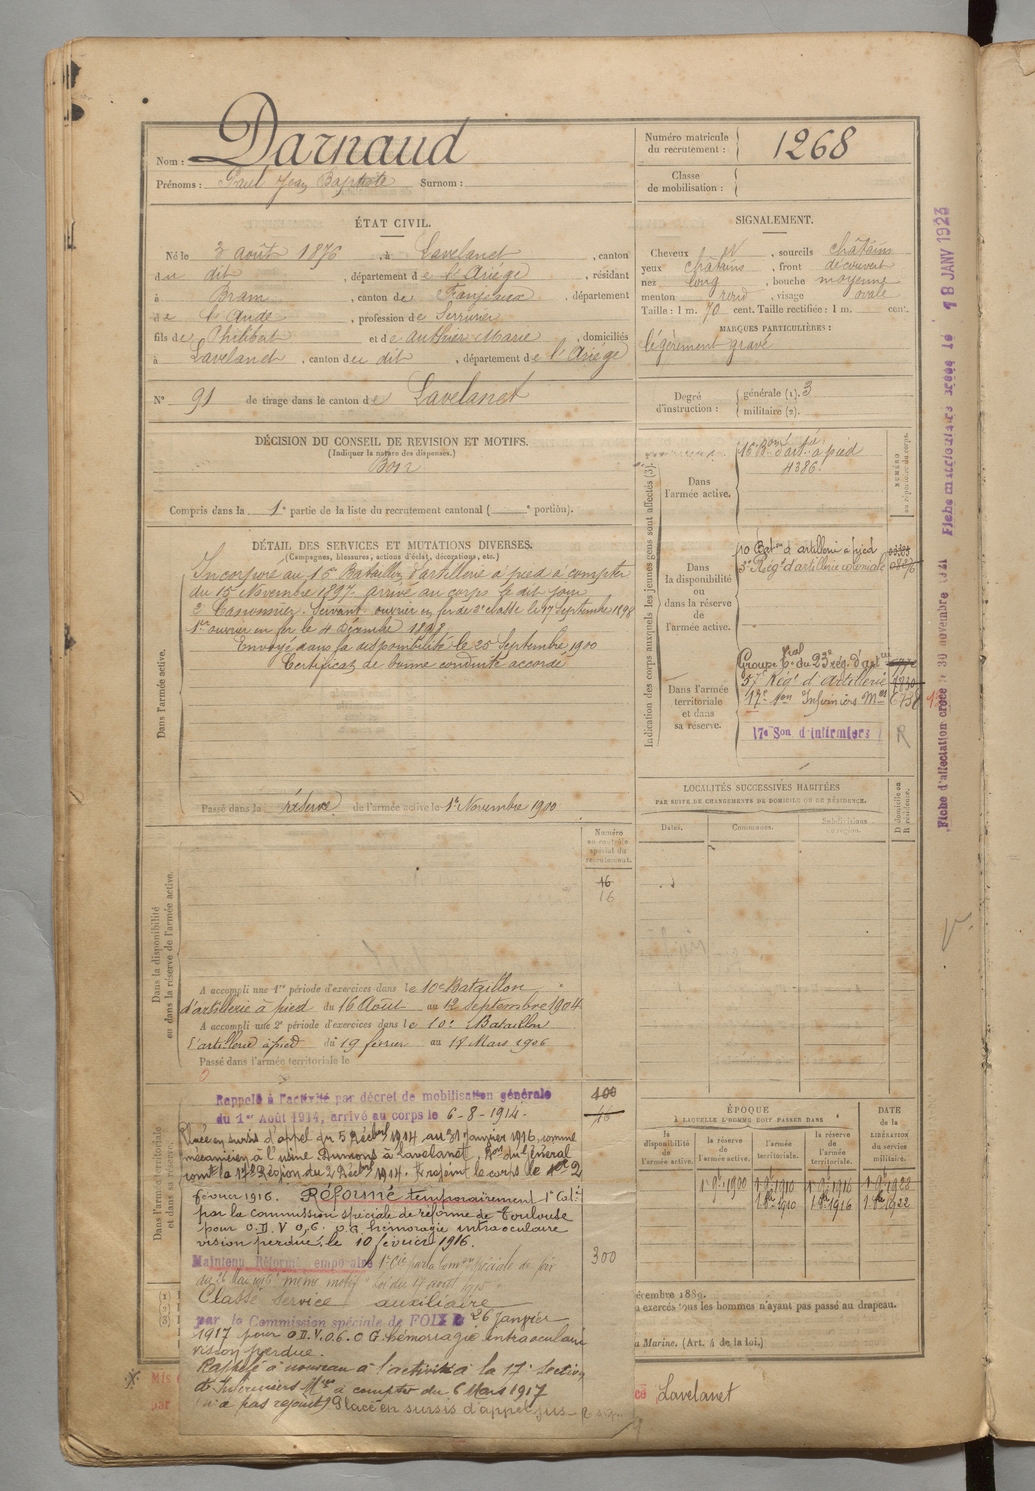 Nom : Darnaud
Prénoms : Paul Jean Baptiste Surnom :
Numéro matricule du recrutement : 1268
Classe de mobilisation :
ÉTAT CIVIL.
Né le 3 août 1876, à Lavelanet, canton
du dit, département de l'Ariège, résidant
à Bram, canton de Fanjeaux, département
de l'Aude, profession de Serrurier
fils de Philibert et de Authier Marie, domiciliés
à Lavelanet, canton du dit, département de l'Ariège
N° 91 de tirage dans le canton de Lavelanet
SIGNALEMENT.
Cheveux N, sourcils châtains
yeux châtains, front découvert
nez long, bouche moyenne
menton rond, visage ovale
Taille : 1 m. 70 cent. Taille rectifiée : 1 m. cent.
MARQUES PARTICULIÈRES :
légèrement gravé
Degré d'instruction : générale (1). 3
militaire (2).
DÉCISION DU CONSEIL DE REVISION ET MOTIFS.
(Indiquer la nature des dispenses.)
Bon
Compris dans la 1e partie de la liste du recrutement cantonal ( e portion).
DÉTAIL DES SERVICES ET MUTATIONS DIVERSES.
(Campagnes, blessures, actions d'éclat, décorations, etc.)
Dans l'armée active.
Incorporé au 16e Bataillon d'artillerie à pied à compter
du 15 Novembre 1897 arrivé au corps le dit jour
2e Canonnier Servant ouvrier en fer de 2e classe le 17 Septembre 1898
1er ouvrier en fer le 4 Décembre 1898
Envoyé dans la disponibilité le 25 Septembre 1900
Certificat de bonne conduite accordé
Passé dans la réserve de l'armée active le 1er Novembre 1900
Indication des corps auxquels les jeunes gens sont affectés (3).
NUMÉRO au répertoire du corps.
Dans l'armée active.
16e Bon d'art. à pied
4386
Dans la disponibilité ou dans la réserve de l'armée active.
10 Baton d'artillerie à pied
3e Régt d'artillerie coloniale
Dans l'armée territoriale et dans sa réserve.
Groupe tral du 23e rég. d'art
57 Régt d'Artillerie
17e Son Infirmiers Mres
17e Son d'infirmiers R
LOCALITÉS SUCCESSIVES HABITÉES
PAR SUITE DE CHANGEMENTS DE DOMICILE OU DE RÉSIDENCE.
Dates. Communes. Subdivisions de région. D domicile ou R résidence.
Numéro au contrôle spécial du recrutement.
16
16
Dans la disponibilité ou dans la réserve de l'armée active.
A accompli une 1re période d'exercices dans le 10e Bataillon
d'artillerie à pied du 16 Août au 12 septembre 1904
A accompli une 2e période d'exercices dans le 10e Bataillon
d'artillerie à pied du 19 février au 17 Mars 1906
Passé dans l'armée territoriale le
Dans l'armée territoriale et dans sa réserve.
100
300
Rappelé à l'activité par décret de mobilisation générale
du 1er Août 1914, arrivé au corps le 6-8-1914.
Placé en sursis d'appel du 5 Décbre 1914 au 31 Janvier 1916, comme
mécanicien à l'usine Dumons à Lavelanet, Don du Général
comt la 17e Région du 2 Décbre 1914. Rejoint le corps le 2
février 1916. Réformé temporairement 1e Cat.
par la commission spéciale de réforme de Toulouse
pour O.D. V 0,6. O.G. hémoragie intraoculaire
vision perdue, le 10 février 1916.
Maintenu Réformé temporaire 1e Cie par la Comon Spéciale de Foix
du 26 Mai 1916 même motif
Classé service auxiliaire
par la Commission spéciale de FOIX le 26 Janvier
1917 pour O.D.V.0.6. O G. hémorragie intraoculaire
vision perdue.
Rappelé à nouveau à l'activité à la 17e Section
d'Infirmiers Mres à compter du 6 Mars 1917
(n'a pas rejoint) Placé en sursis d'appel jus-
ÉPOQUE
À LAQUELLE L'HOMME DOIT PASSER DANS
la disponibilité de l'armée active. la réserve de l'armée active. l'armée territoriale. la réserve de l'armée territoriale.
DATE de la LIBÉRATION du service militaire.
1 9bre 1900 1 9bre 1910 1 9bre 1916 1 9bre 1923
1 8bre 1910 1 8bre 1916 1 8bre 1922
écembre 1889.
a exercés tous les hommes n'ayant pas passé au drapeau.
a Marine. (Art. 4 de la loi.)
Lavelanet
Fiche d'affectation créée le 30 novembre 1921 Fiche matriculaire créée le 18 JANV 1923